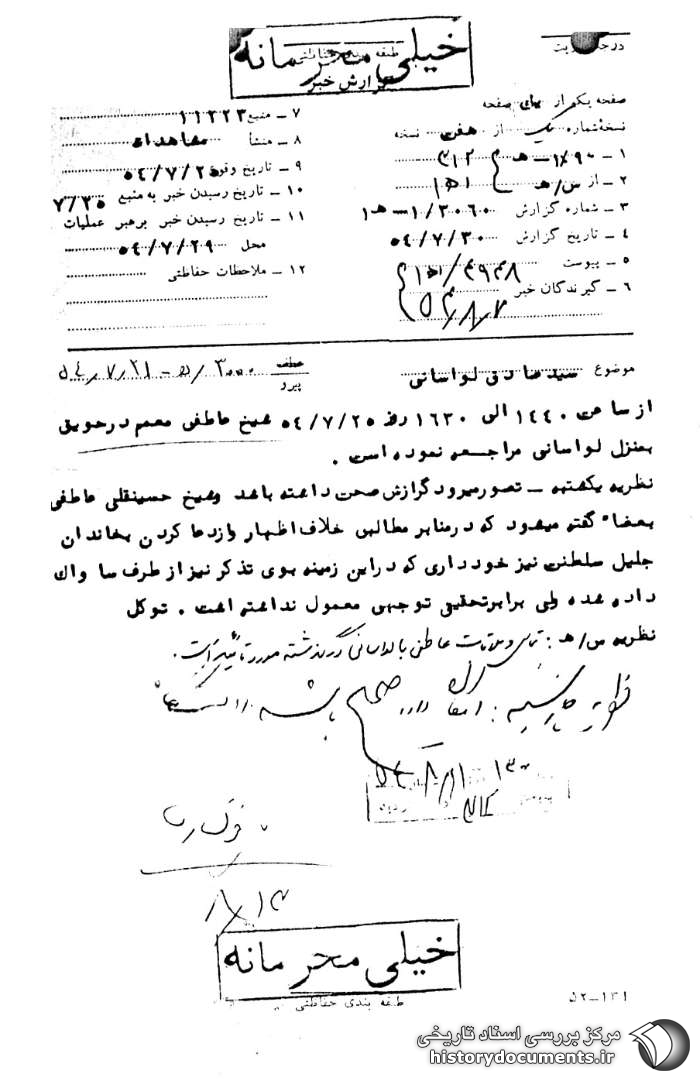 خیلی محرمانه
طبقه بندی حفاظتی
گزارش خبر
صفحه یکم از صفحه
نسخه شماره یک از هفت نسخه
۱ – ۳۱۲
۲ – از س/هـ ۱۵۱
۳ – شماره گزارش ۱/۲۰۶۰–هـ۱
۴ – تاریخ گزارش ۵۴/۷/۳۰
۵ – پیوست
۶ – گیرندگان خبر
۷ – منبع ۱۱۲۲۳
۸ – منشأ مشاهدات
۹ – تاریخ وقوع ۵۴/۷/۲۵
۱۰ – تاریخ رسیدن خبر به منبع ۷/۲۵
۱۱ – تاریخ رسیدن خبر برهبر عملیات
محل ۵۴/۷/۲۹
۱۲ – ملاحظات حفاظتی
موضوع سیدصادق لواسانی
عطف
پیرو
۵۴/۷/۲۱ – ۳۰۰۰/۵
از ساعت ۱۴۴۰ الی ۱۶۳۰ روز ۵۴/۷/۲۵ شیخ عاطفی معمم درحویق
بمنزل لواسانی مراجعه نموده است .
نظریه یکشنبه – تصور میرود گزارش صحت داشته باشد و شیخ حسینقلی عاطفی
بعضاً گفته میشود که در منابر مطالبی خلاف اظهار و از دعا کردن بخاندان
جلیل سلطنت نیز خودداری که دراین زمینه بوی تذکر نیز از طرف ساواک
داده شده ولی برابر تحقیق توجهی معمول نداشته است . توکل
نظریه س/هـ : تماس و ملاقات عاطفی با لواسانی در گذشته مورد تائید است .
نظریه چهارشنبه : امکان دارد صحیح باشد
۸/۱۳
خیلی محرمانه
طبقه بندی حفاظتی
۵۲–۱۳۱
مرکز بررسی اسناد تاریخی
historydocuments.ir